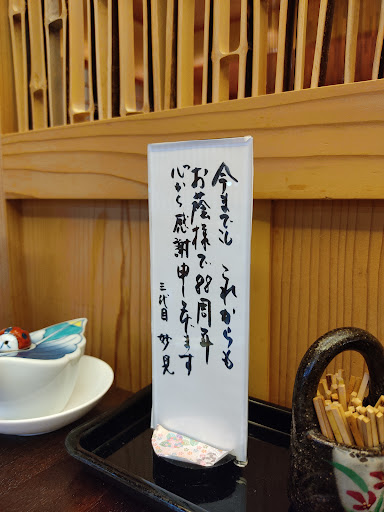 今までも これからも
お蔭様で88周年
心から感謝申し上げます
三代目 妙見